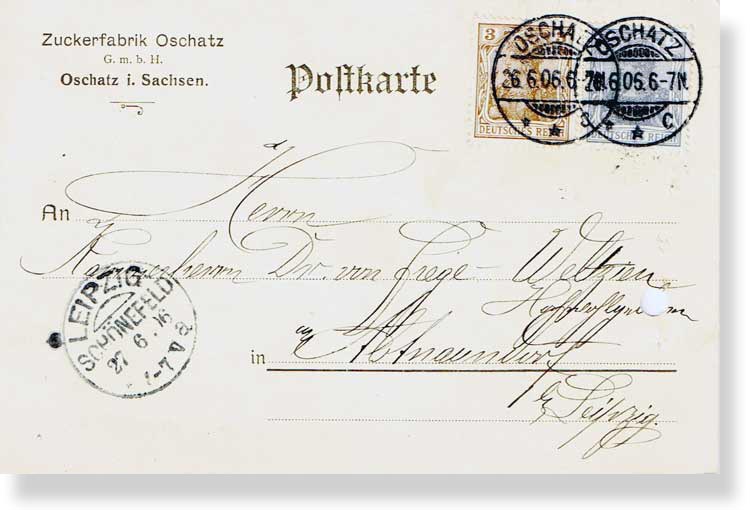 Zuckerfabrik Oschatz
G. m. b. H.
Oschatz i. Sachsen.
Postkarte
3
DEUTSCHES REICH
DEUTSCHES REICH
OSCHATZ
26.6.06.6-7N.
c
OSCHATZ
26.6.06.6-7N.
c
An Herrn
Kammerherrn Dr. von Frege-Weltzien
in Abtnaundorf
b/ Leipzig.
LEIPZIG
SCHÖNEFELD
27 6 06
7 V
a